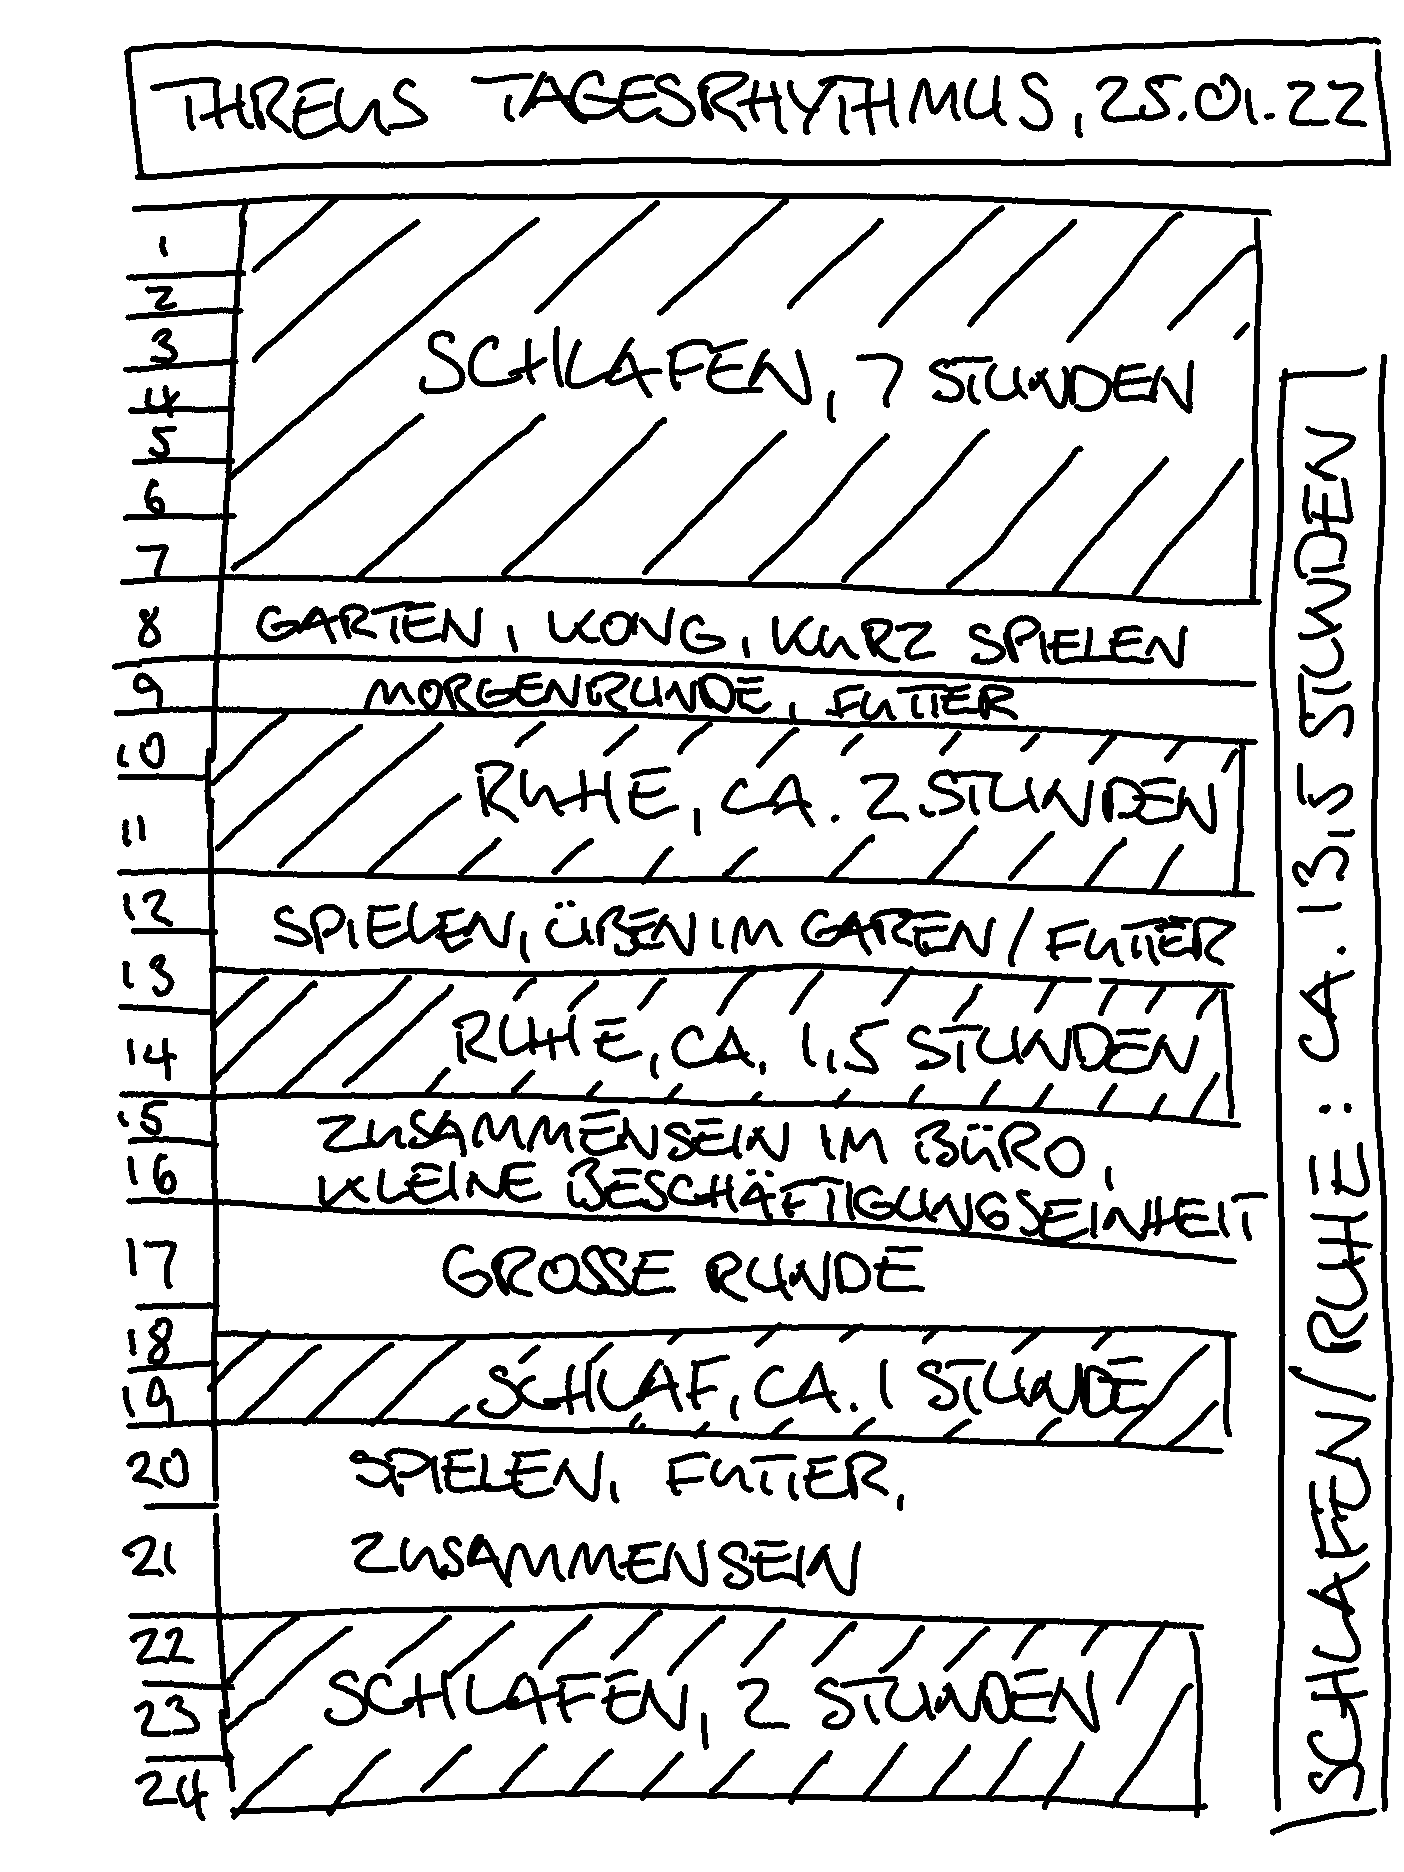 THREUS TAGESRHYTHMUS, 25.01.22
1
2
3
SCHLAFEN, 7 STUNDEN
4
5
6
7
8 GARTEN, KONG, KURZ SPIELEN
9 MORGENRUNDE, FUTTER
10
RUHE, CA. 2 STUNDEN
11
12 SPIELEN, ÜBEN IM GARTEN / FUTTER
13
14 RUHE, CA. 1,5 STUNDEN
15 ZUSAMMENSEIN IM BÜRO,
16 KLEINE BESCHÄFTIGUNGSEINHEIT
17 GROSSE RUNDE
18
19 SCHLAF, CA. 1 STUNDE
20 SPIELEN, FUTTER,
21 ZUSAMMENSEIN
22
23 SCHLAFEN, 2 STUNDEN
24
SCHLAFEN/RUHE: CA. 13,5 STUNDEN